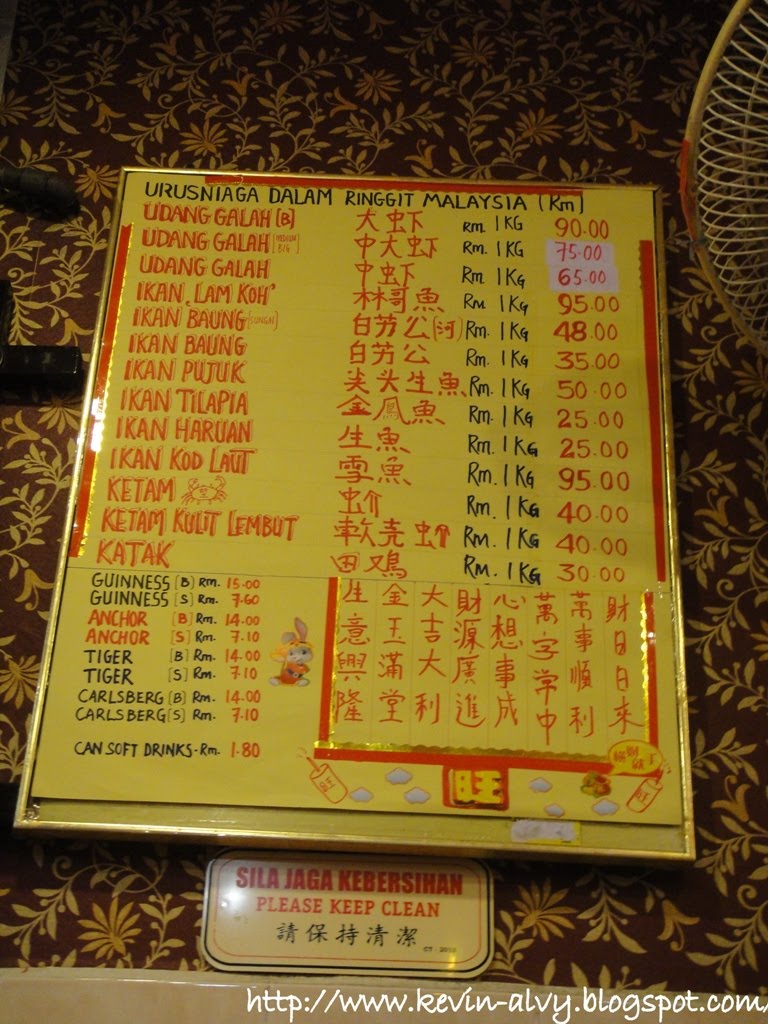 URUSNIAGA DALAM RINGGIT MALAYSIA (Rm)
UDANG GALAH (B) 大虾 Rm. 1KG 90.00
UDANG GALAH (MEDIUM BIG) 中大虾 Rm. 1KG 75.00
UDANG GALAH 中虾 Rm. 1KG 65.00
IKAN 'LAM KOH' 林哥魚 Rm 1KG 95.00
IKAN BAUNG (SUNGAI) 白芳公(河) Rm. 1KG 48.00
IKAN BAUNG 白芳公 Rm. 1KG 35.00
IKAN PUJUK 尖头生魚 Rm. 1KG 50.00
IKAN TILAPIA 金鳳魚 Rm. 1KG 25.00
IKAN HARUAN 生魚 Rm. 1KG 25.00
IKAN KOD LAUT 雪魚 Rm. 1KG 95.00
KETAM 虫介 Rm. 1KG 40.00
KETAM KULIT LEMBUT 軟壳虫介 Rm. 1KG 40.00
KATAK 田鸡 Rm. 1KG 30.00
GUINNESS (B) Rm. 15.00
GUINNESS (S) Rm. 7.60
ANCHOR (B) Rm. 14.00
ANCHOR (S) Rm. 7.10
TIGER (B) Rm. 14.00
TIGER (S) Rm. 7.10
CARLSBERG (B) Rm. 14.00
CARLSBERG (S) Rm. 7.10
CAN SOFT DRINKS - Rm. 1.80
財日日來
萬事順利
萬字常中
心想事成
財源廣進
大吉大利
金玉滿堂
生意興隆
旺
SILA JAGA KEBERSIHAN
PLEASE KEEP CLEAN
請保持清潔
http://www.kevin-alvy.blogspot.com/